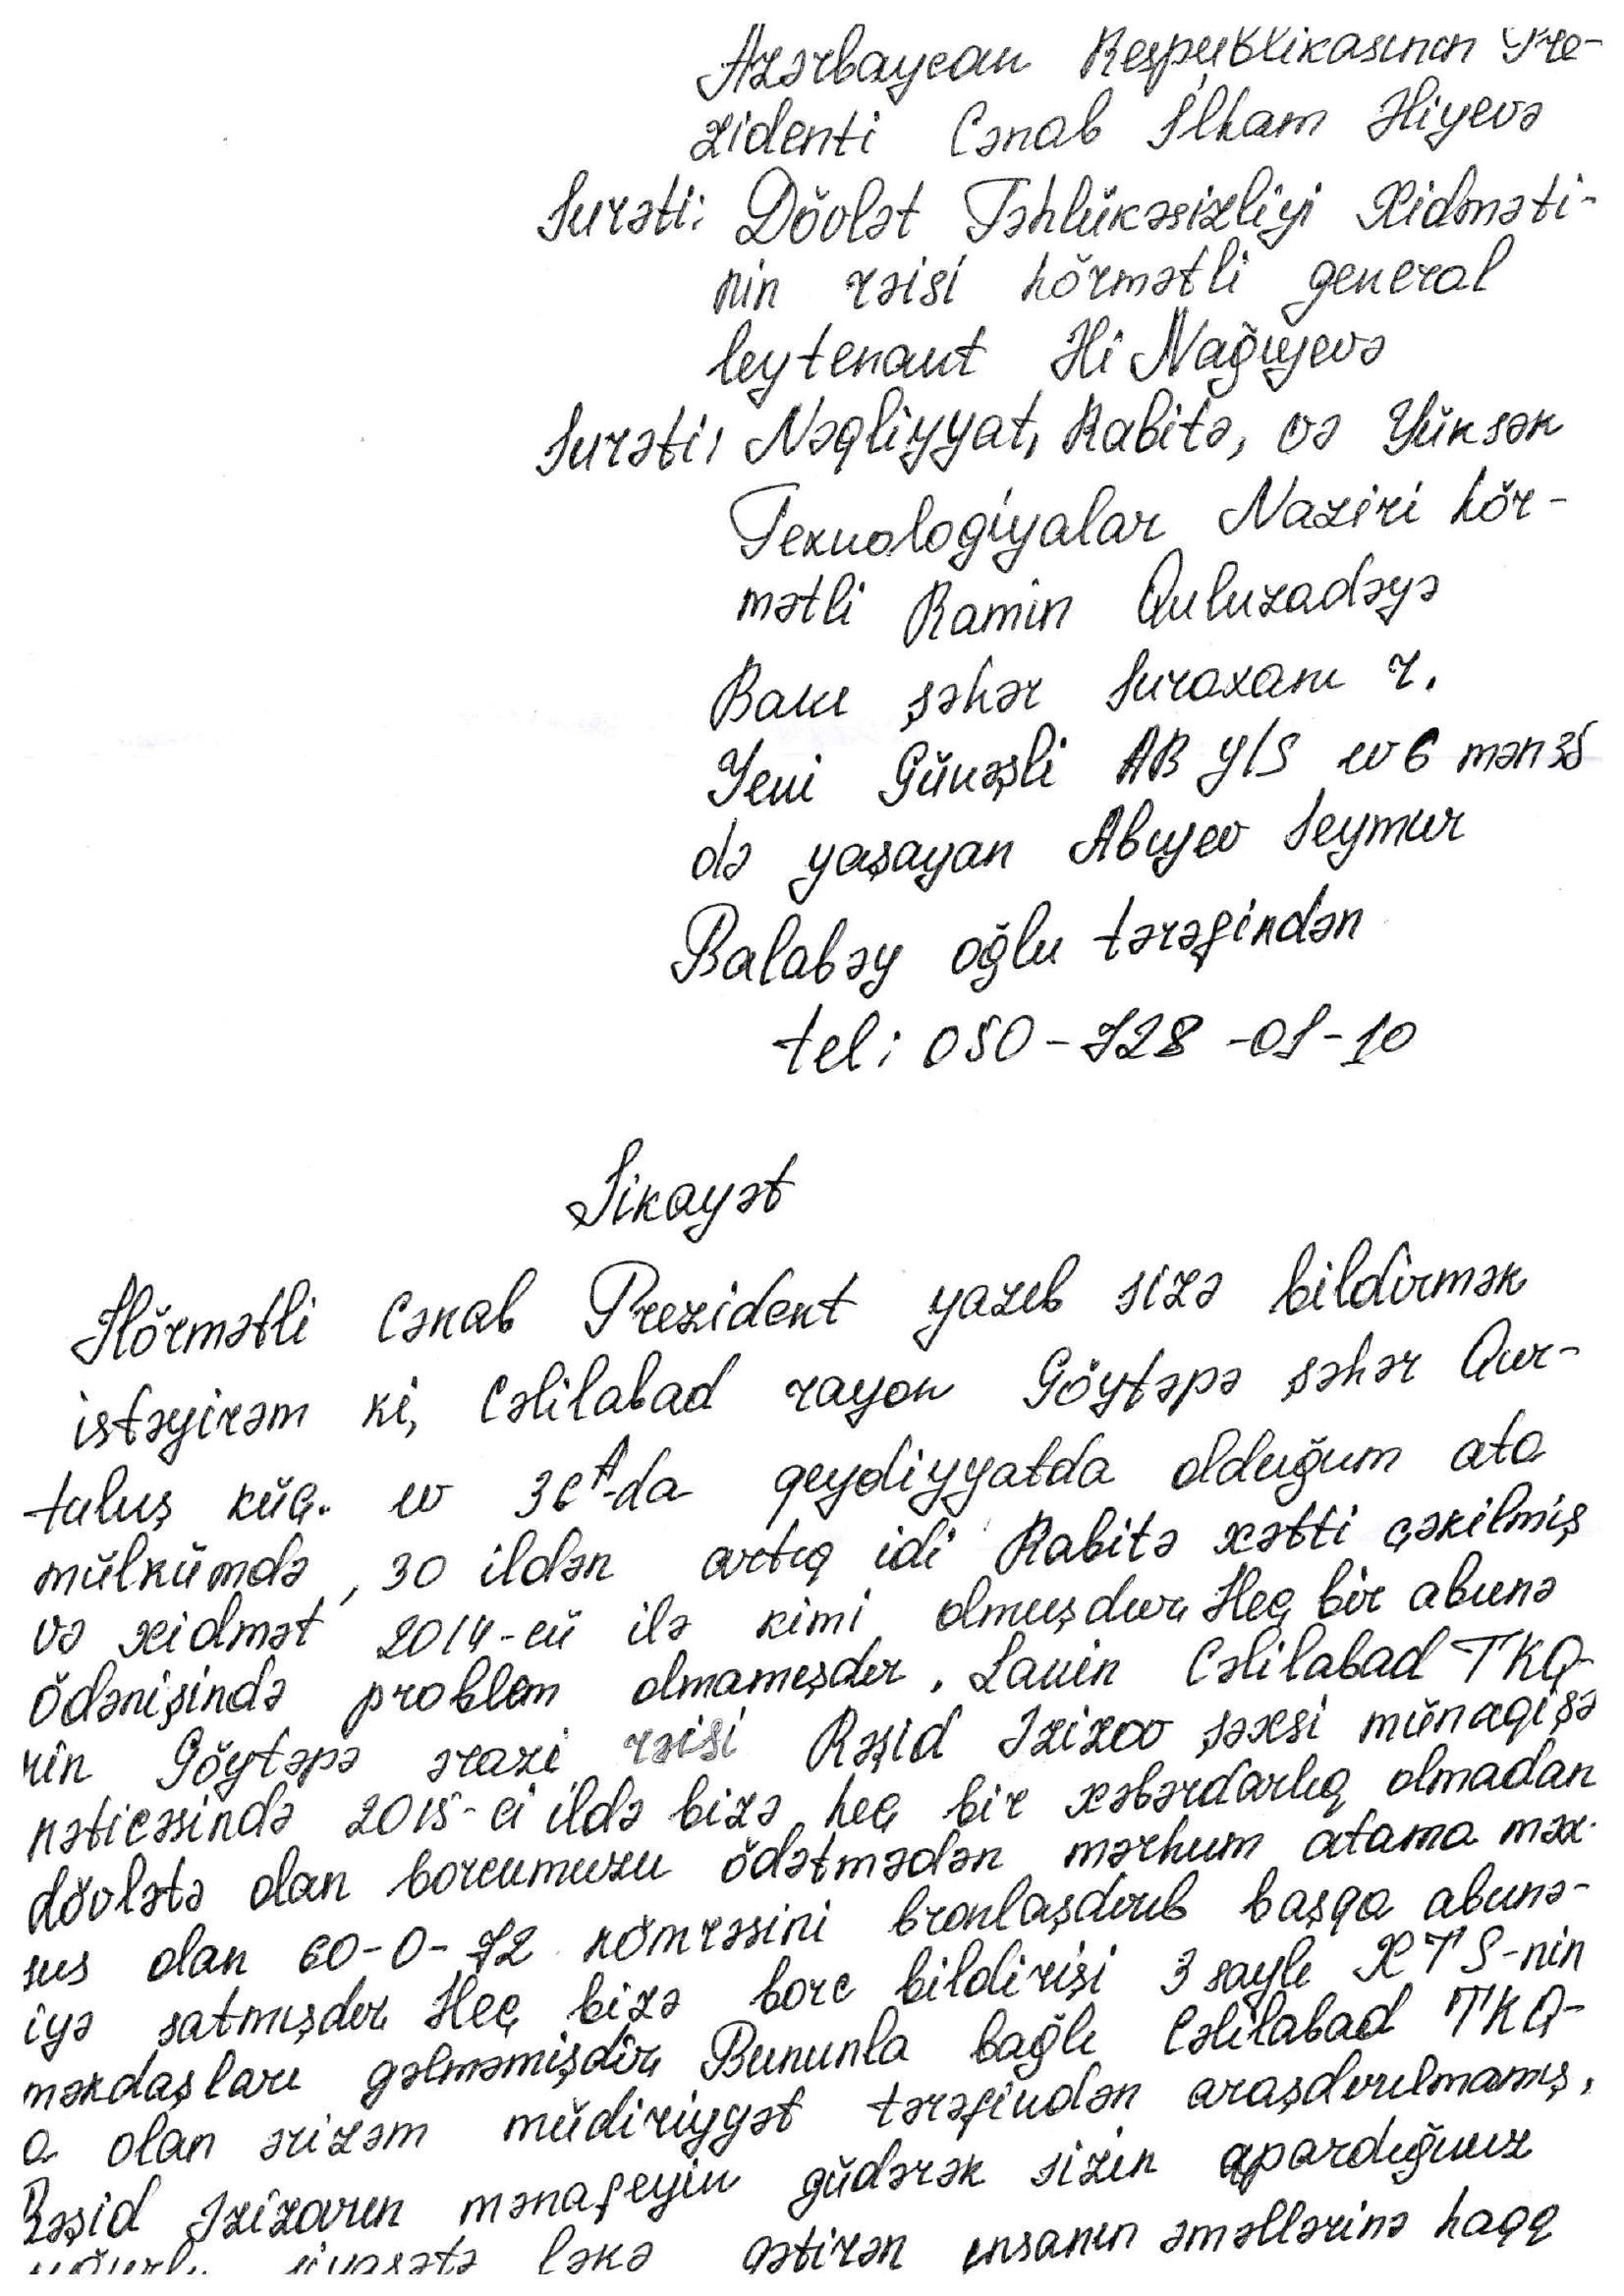 Azərbaycan Respublikasının Pre-
zidenti Cənab İlham Əliyevə
Surəti: Dövlət Təhlükəsizliyi Xidməti-
nin rəisi hörmətli general
leytenant Əli Nağıyevə
Surəti: Nəqliyyat, Rabitə, və Yüksək
Texnologiyalar Naziri hör-
mətli Ramin Quluzadəyə
Bakı şəhər Suraxanı r.
Yeni Günəşli AB Y/S ev 6 mən 35
də yaşayan Abıyev Seymur
Balabəy oğlu tərəfindən
tel: 050-728-01-10
Şikayət
Hörmətli Cənab Prezident yazıb sizə bildirmək
istəyirəm ki, Cəlilabad rayon Göytəpə şəhər Qur-
tuluş küç. ev 36A-da qeydiyyatda olduğum ata
mülkümdə, 30 ildən artıq idi Rabitə xətti çəkilmiş
və xidmət 2014-cü ilə kimi olmuşdur. Heç bir abunə
ödənişində problem olmamışdır. Lakin Cəlilabad TKQ-
nin Göytəpə ərazi rəisi Rəşid Əzizov şəxsi münaqişə
nəticəsində 2015-ci ildə bizə heç bir xəbərdarlıq olmadan
dövlətə olan borcumuzu ödətmədən mərhum atama məx-
sus olan 60-0-72 nömrəsini bronlaşdırıb başqa abunə-
iyə satmışdır. Heç bizə borc bildirişi 3 saylı XTS-nin
məkdaşları gəlməmişdir. Bununla bağlı Cəlilabad TKQ-
a olan ərizəm müdiriyyət tərəfindən araşdırılmamış,
Rəşid Əzizovun mənafeyin güdərək sizin apardığınız
uğurlu siyasətə ləkə gətirən insanın əməllərinə haqq